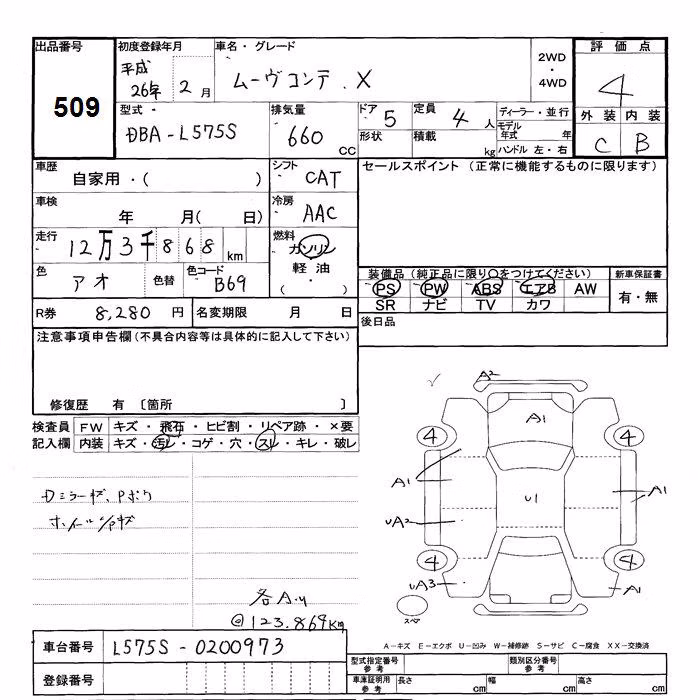 出品番号
509
初度登録年月
平成
26年 2月
車名・グレード
ムーヴコンテ . X
2WD
・
4WD
評価点
4
外装 内装
C B
型式・
DBA-L575S
排気量
660 cc
ドア 5
定員 4 人
形状
積載 kg
ディーラー・並行
モデル年式 年
ハンドル 左・右
車歴
自家用・( )
シフト
CAT
セールスポイント (正常に機能するものに限ります)
車検
年 月( 日)
冷房
AAC
走行
12万3千868 km
燃料
ガソリン
軽油
( ・ )
色
アオ
色替
色コード
B69
装備品(純正品に限り○をつけてください)
PS PW ABS エアB AW
SR ナビ TV カワ
新車保証書
有・無
R券 8,280 円
名変期限 月 日
後日品
注意事項申告欄(不具合内容等は具体的に記入して下さい)
修復歴 有 〔箇所 〕
検査員記入欄
FW キズ・飛石・ヒビ割・リペア跡・×要
内装 キズ・汚レ・コゲ・穴・スレ・キレ・破レ
Dミラーキズ、Pボウ
各A.U
@123.869km
A2
A1
4
4
A1
U1
A1
UA2
4
4
UA3
A1
スペア
A-キズ E-エクボ U-凹み W-補修跡 S-サビ C-腐食 XX-交換済
車台番号 L575S-0200973
登録番号
型式指定番号
参考
類別区分番号
参考
車庫証明用
参考
長さ cm
幅 cm
高さ cm